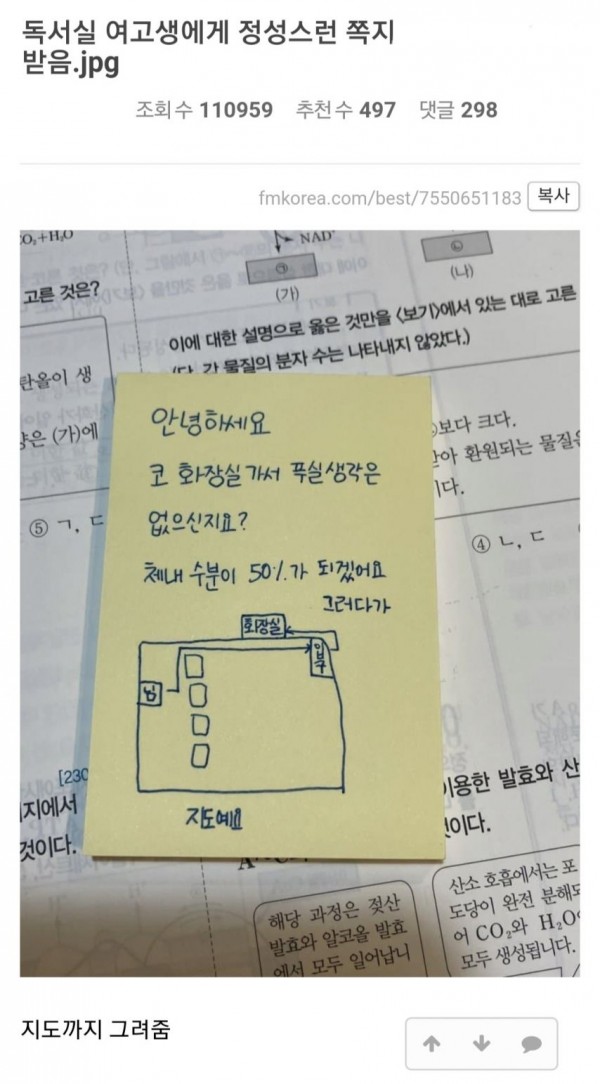 독서실 여고생에게 정성스런 쪽지
받음.jpg
조회수 110959 추천수 497 댓글 298
fmkorea.com/best/7550651183 복사
CO₂+H₂O
NAD⁺
㉠
㉡
(가)
(나)
고른 것은?
이에 대한 설명으로 옳은 것만을 <보기>에서 있는 대로 고른
(단, 각 물질의 분자 수는 나타내지 않았다.)
탄올이 생
안녕하세요
보다 크다.
은 (가)에
아 환원되는 물질은
코 화장실가서 푸실생각은
이다.
⑤ ㄱ, ㄷ
없으신지요?
④ ㄴ, ㄷ
체내 수분이 50%가 되겠어요
그러다가
화장실
입구
님
지도예요
[230
지에서
이용한 발효와 산
것이다.
것이다.
해당 과정은 젖산
발효와 알코올 발효
에서 모두 일어납니
산소 호흡에서는 포
도당이 완전 분해되
어 CO₂와 H₂O
모두 생성됩니다.
지도까지 그려줌